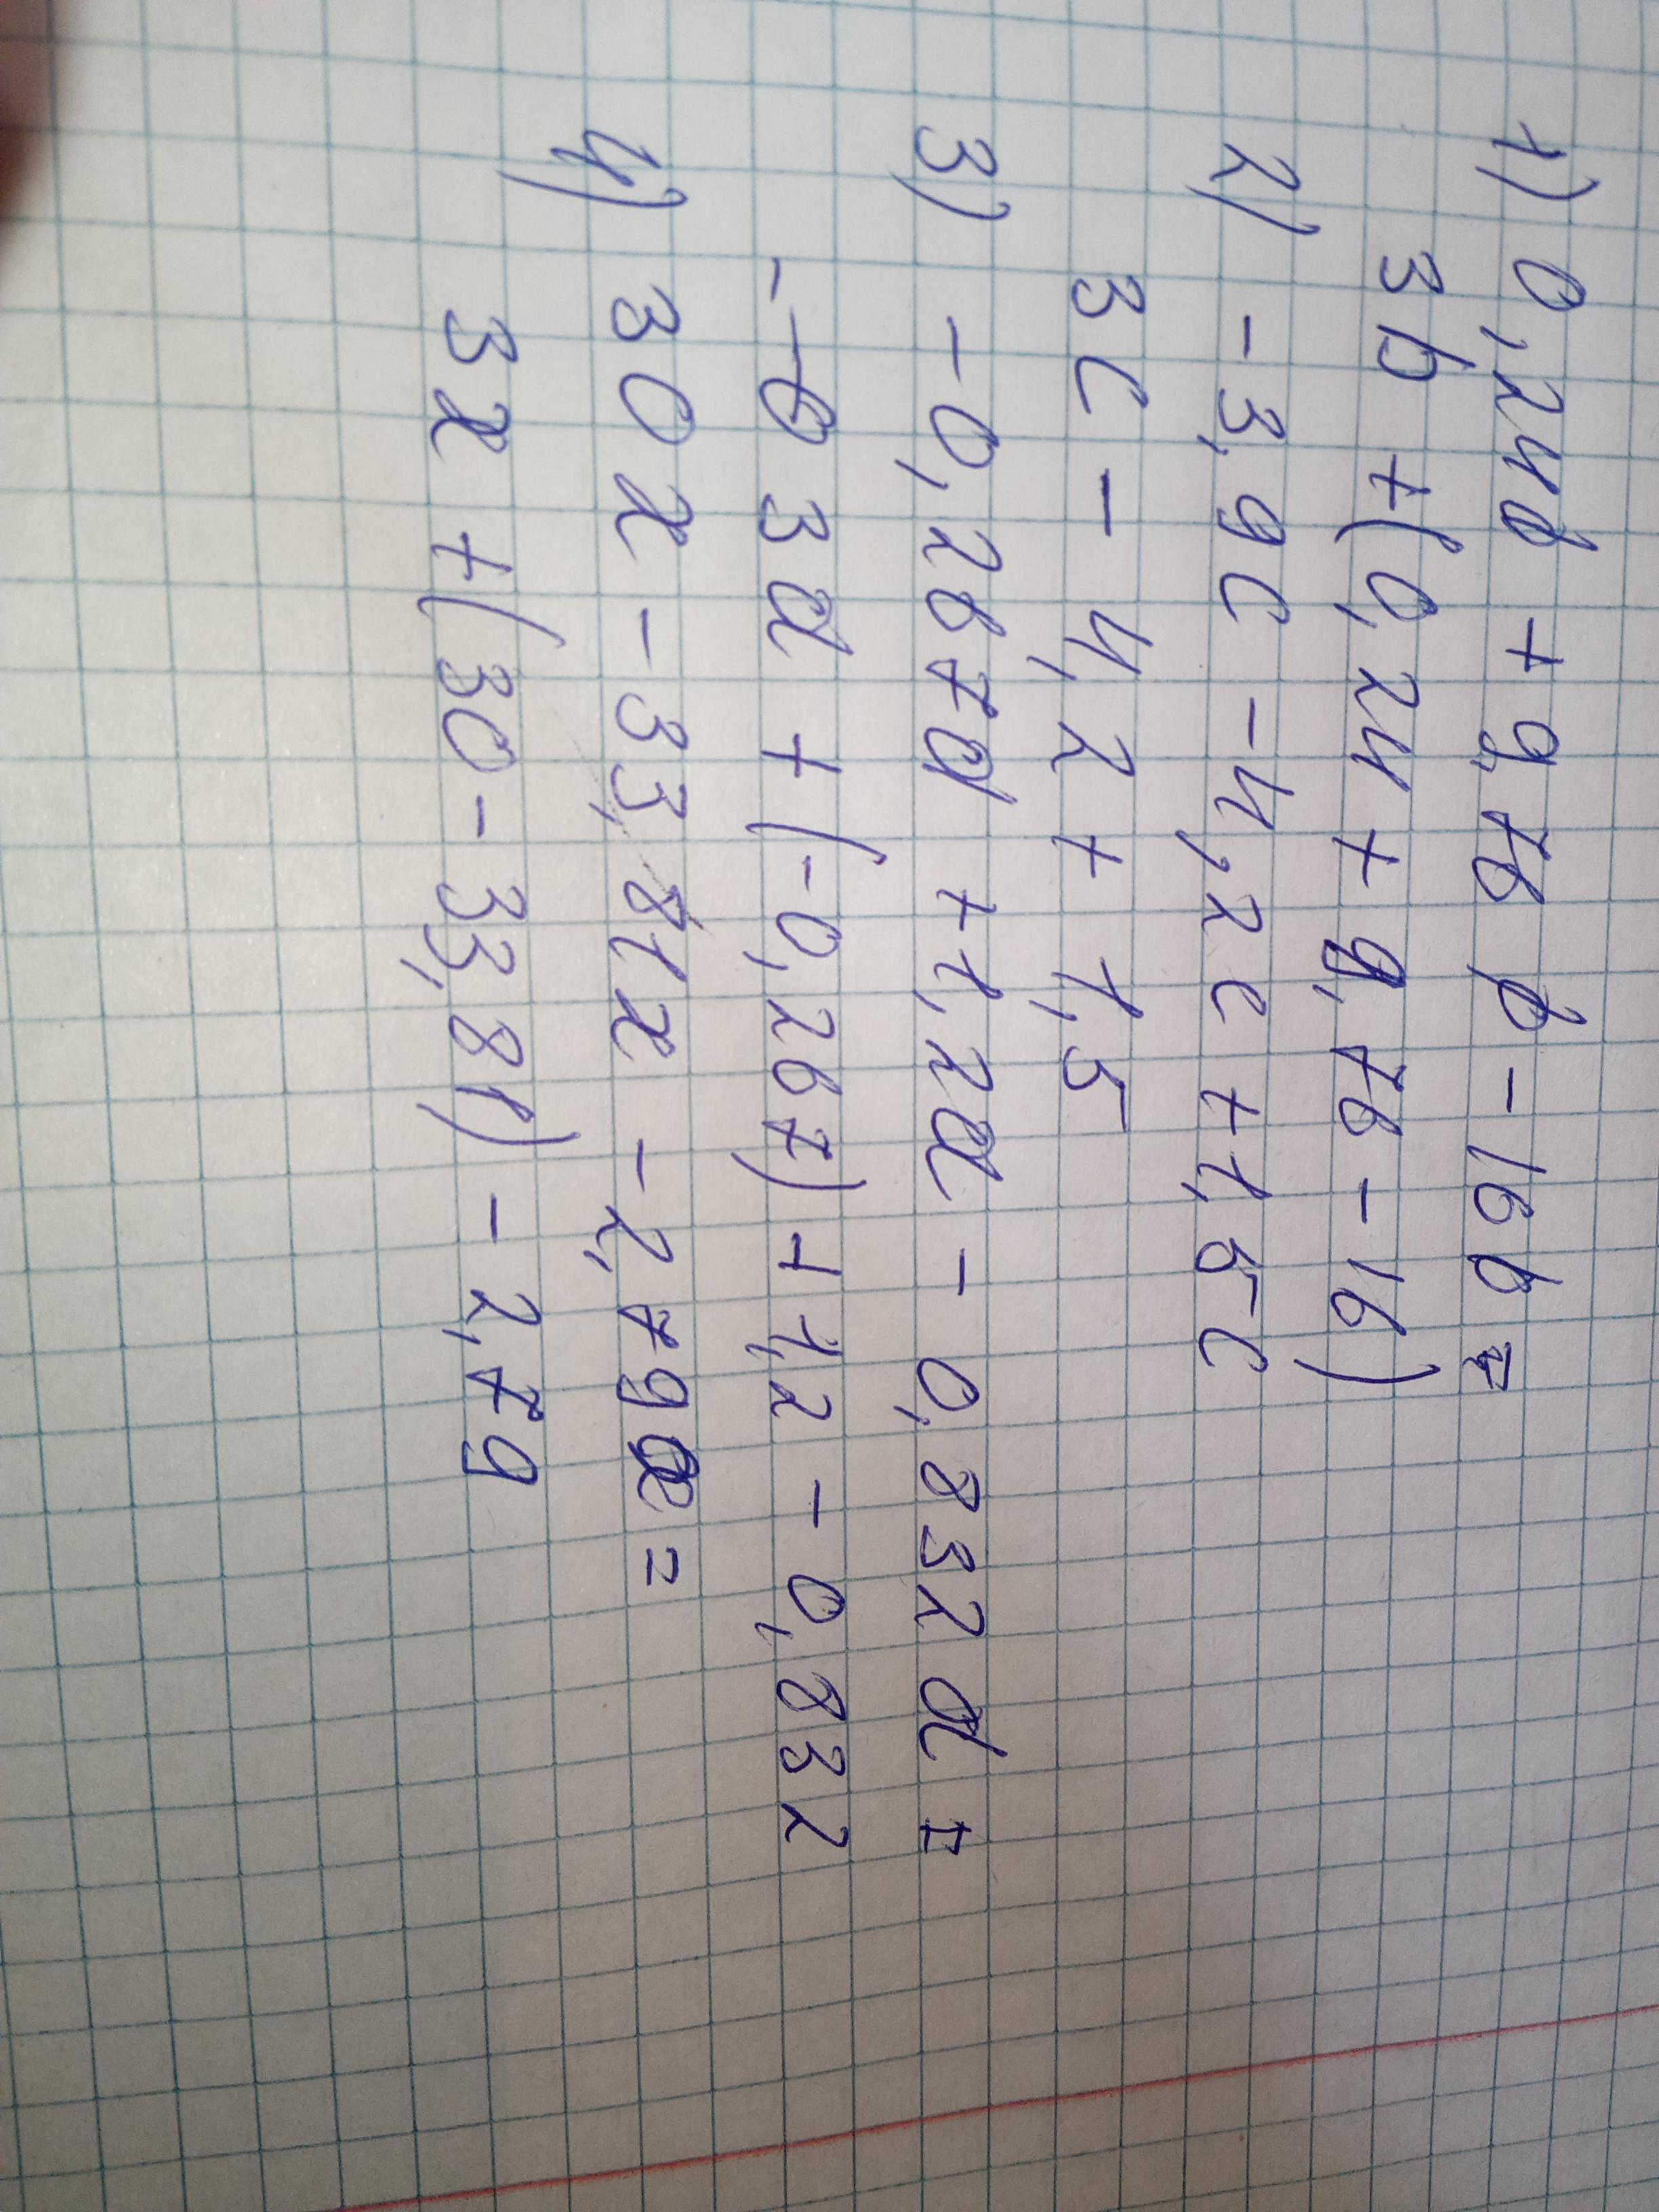 1) 0,24b + 9,76b - 16b =
3b + (0,24 + 9,76 - 16)
2) - 3,9c - 4,2c + 1,5c
3c - 4,2 + 1,5
3) - 0,267a + 1,2a - 0,832a =
3a + (-0,267) + 1,2 - 0,832
4) 30x - 33,81x - 2,79x =
3x + (30 - 33,81) - 2,79